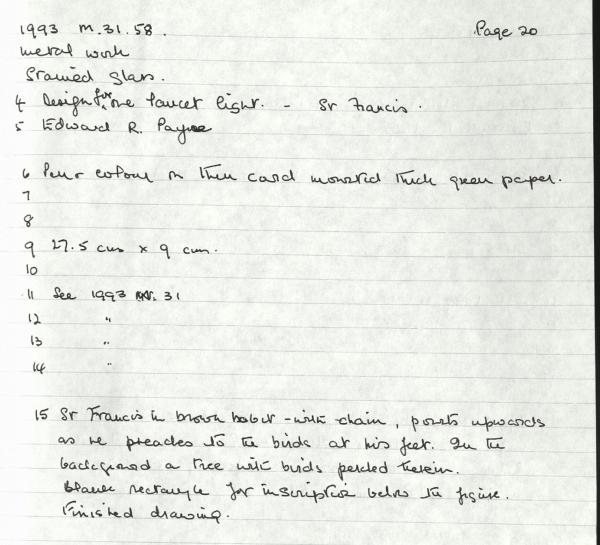 1993 M.31.58. Page 20
metal work
Stained Glass.
4 Design for one lancet light. - St Francis.
5 Edward R. Payne
6 Pen & colour on thin card mounted thick green paper.
7
8
9 27.5 cms x 9 cms.
10
11 See 1993 M. 31
12 "
13 "
14 "
15 St Francis in brown habit - with chain, points upwards
as he preaches to the birds at his feet. In the
background a tree with birds perched therein.
blank rectangle for inscription below the figure.
Finished drawing.